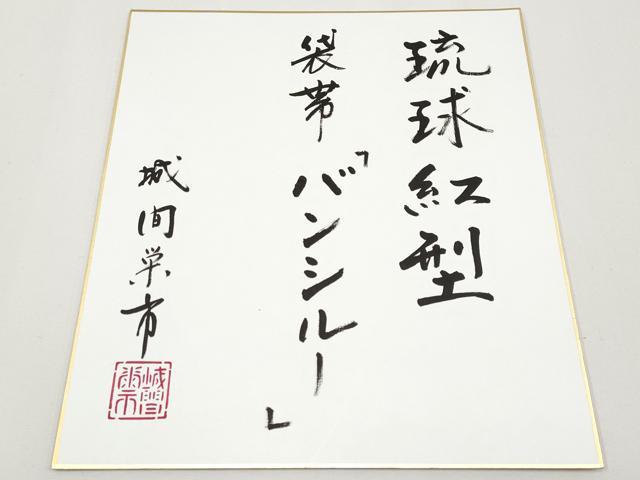 琉球紅型
袋帯「バンシルー」
城間栄市
城間栄市